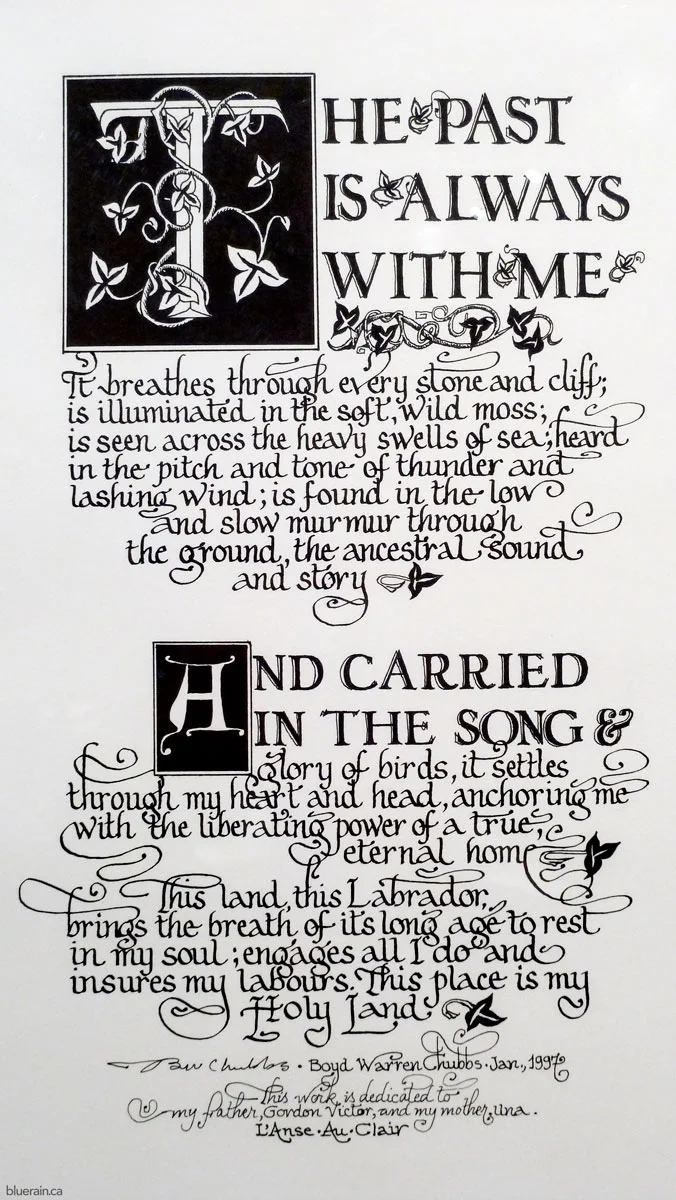 THE PAST
IS ALWAYS
WITH ME
It breathes through every stone and cliff;
is illuminated in the soft, wild moss;
is seen across the heavy swells of sea; heard
in the pitch and tone of thunder and
lashing wind; is found in the low
and slow murmur through
the ground, the ancestral sound
and story
AND CARRIED
IN THE SONG &
glory of birds, it settles
through my heart and head, anchoring me
with the liberating power of a true,
eternal home
This land, this Labrador,
brings the breath of its long age to rest
in my soul; engages all I do and
insures my labours. This place is my
Holy Land
Boyd Chubbs · Boyd Warren Chubbs · Jan., 1997
This work is dedicated to
my father, Gordon Victor, and my mother, Una.
L'Anse · Au · Clair
bluerain.ca